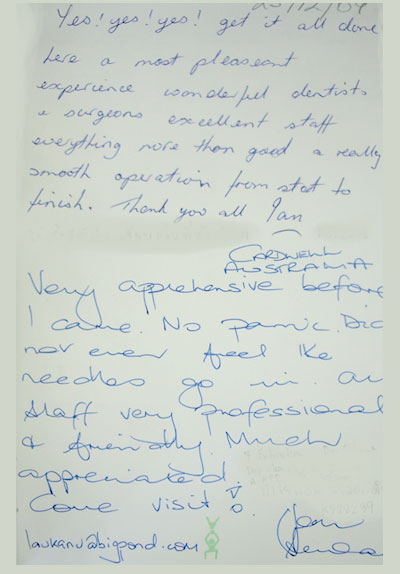 Yes! yes! yes! get it all done
here a most pleaseant
experience wonderful dentists
& surgeons excellent staff
everything more than good a really
smooth operation from stat to
finish. Thank you all Ian
CARDWELL
AUSTRALIA
Very apprehensive before
I came. No panic. Did
not even feel the
needles go in. All
staff very professional
& friendly. Much
appreciated.
Come visit
laukanu@bigpond.com